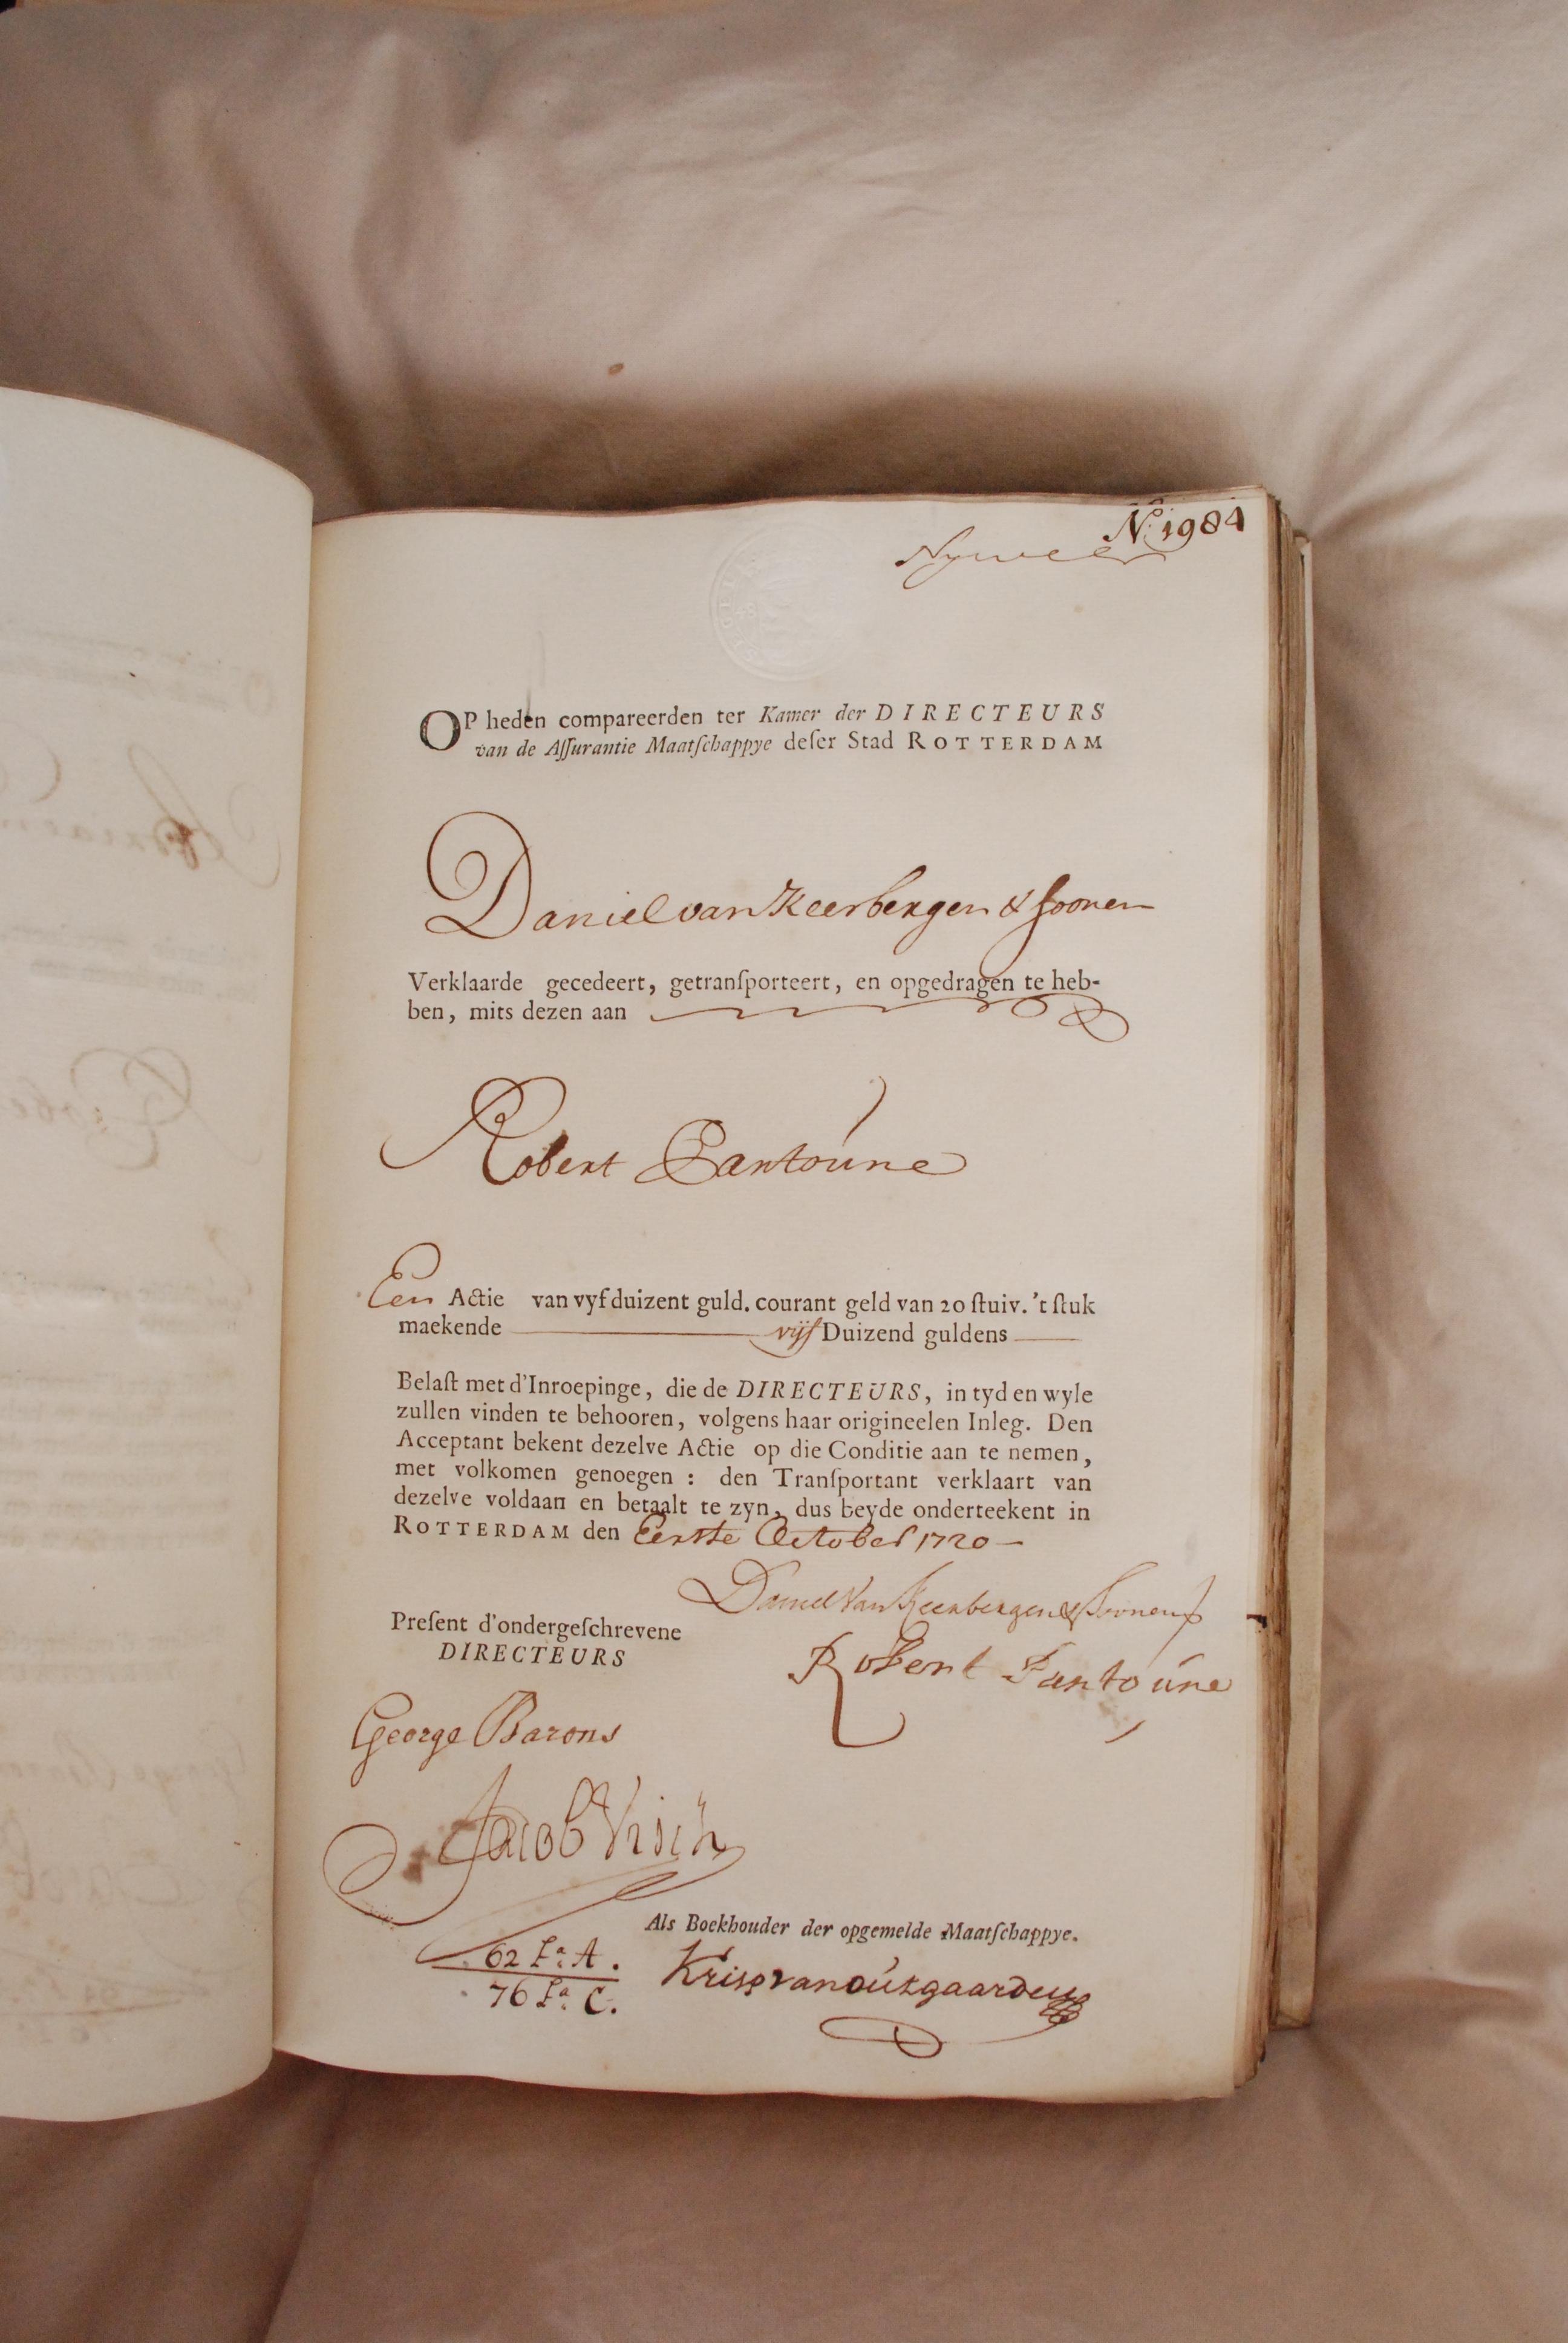 No. 1984
OP heden compareerden ter Kamer der DIRECTEURS
van de Aſſurantie Maatſchappye deſer Stad ROTTERDAM
Daniel van Keerbergen & soonen
Verklaarde gecedeert, getranſporteert, en opgedragen te heb-
ben, mits dezen aan
Robert Pantoune
Een Actie van vyf duizent guld. courant geld van 20 ſtuiv. 't ſtuk
maekende vijf Duizend guldens
Belaſt met d'Inroepinge, die de DIRECTEURS, in tyd en wyle
zullen vinden te behooren, volgens haar origineelen Inleg. Den
Acceptant bekent dezelve Actie op die Conditie aan te nemen,
met volkomen genoegen : den Tranſportant verklaart van
dezelve voldaan en betaalt te zyn, dus beyde onderteekent in
ROTTERDAM den Eerste October 1720
Daniel Van Keerbergen & Soonen
Preſent d'ondergeſchrevene
DIRECTEURS
Robert Pantoune
George Barons
Jacob Visch
Als Boekhouder der opgemelde Maatſchappye.
62 La. A.
76 La. C.